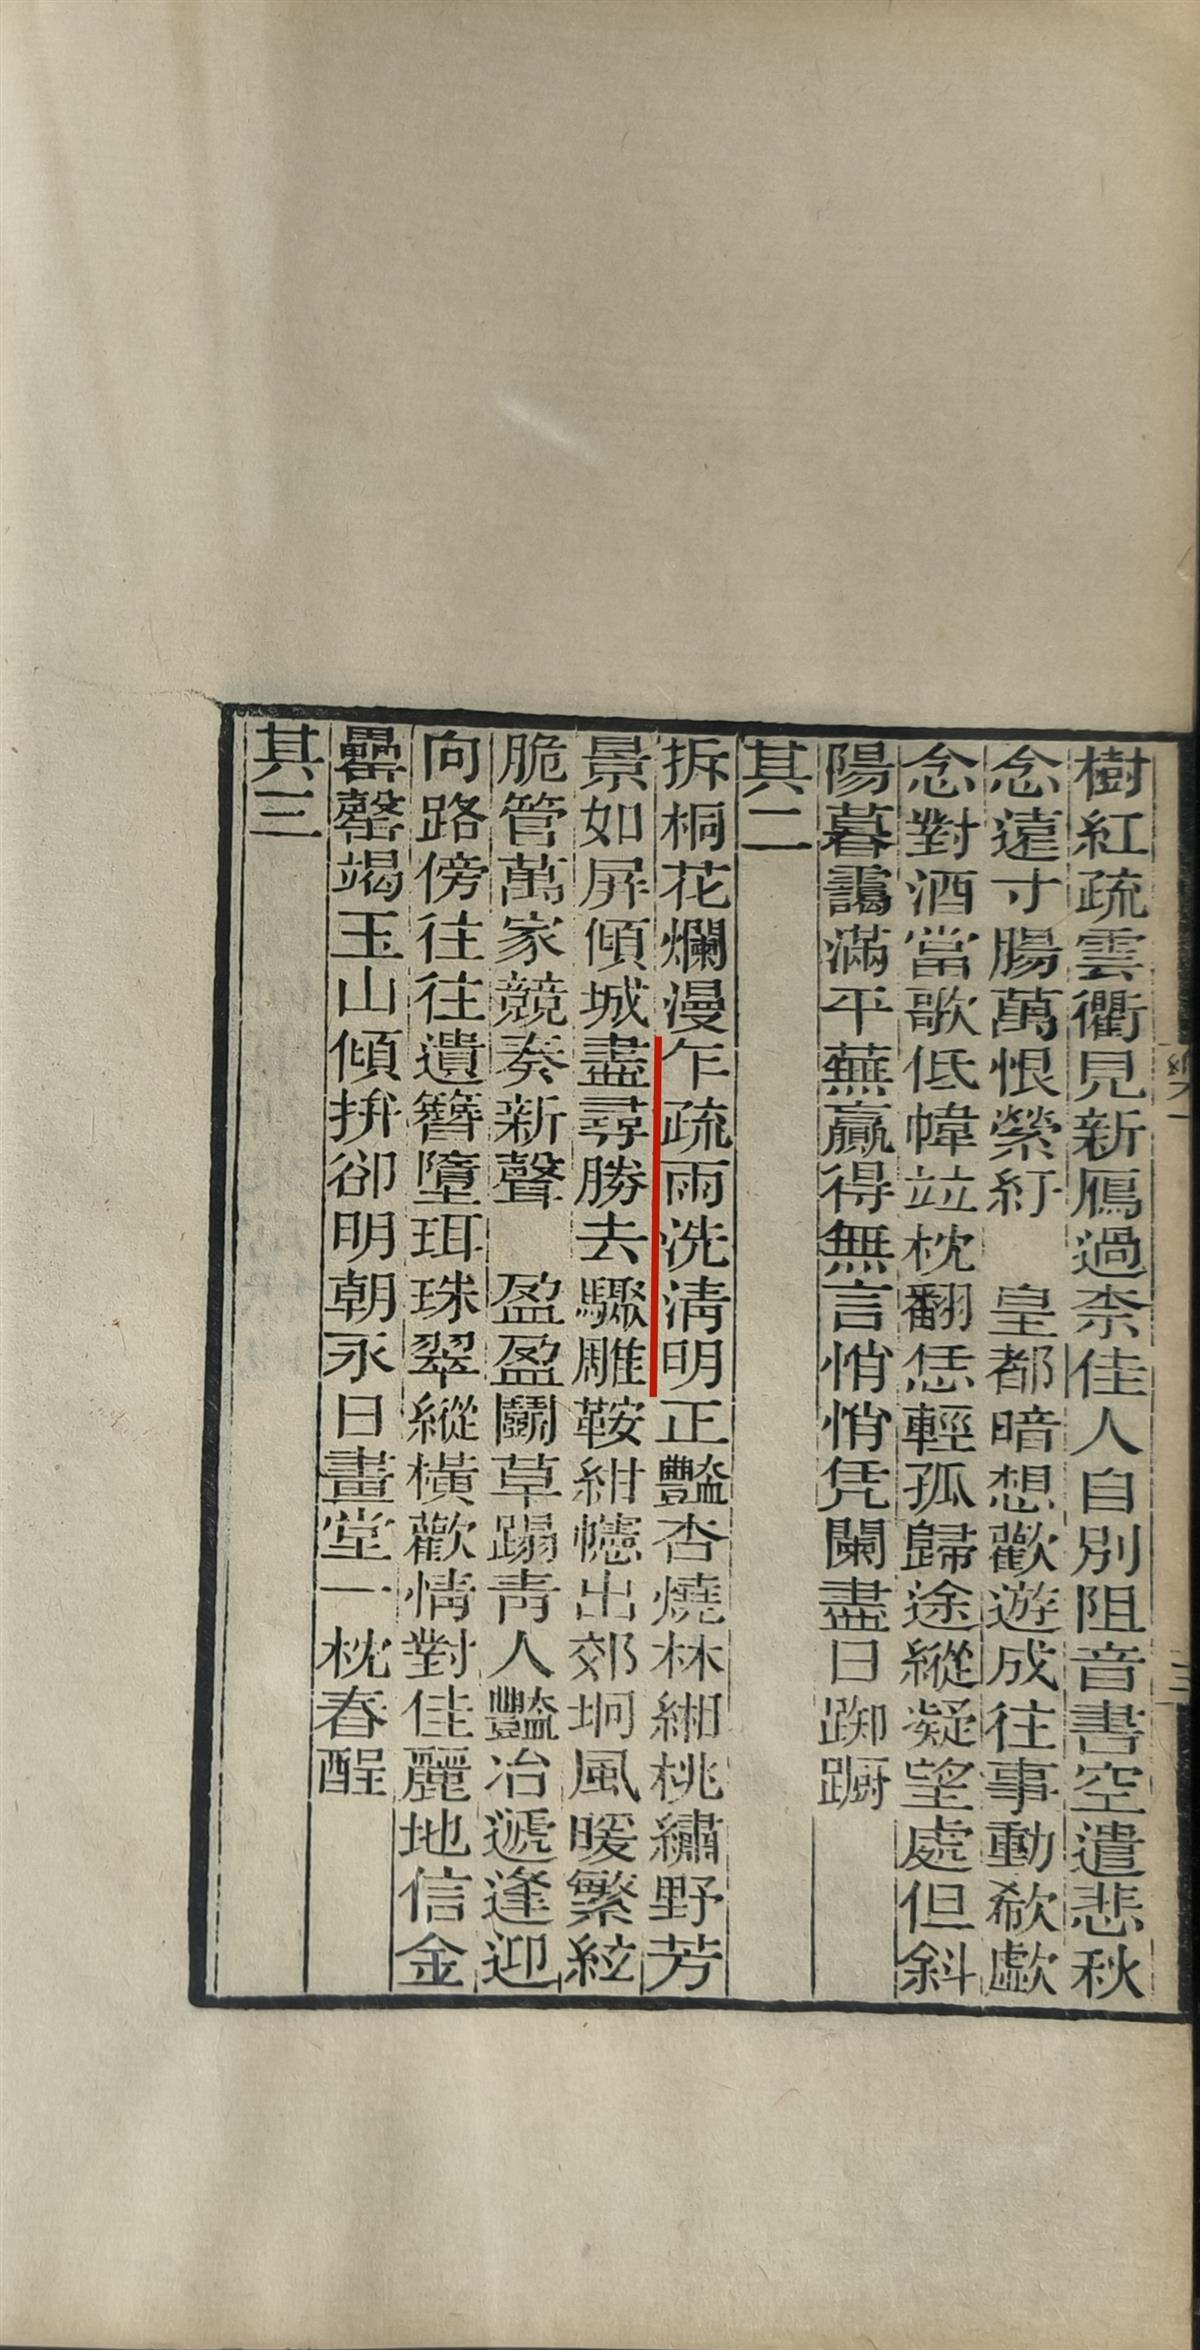 樹紅疏雲衢見新鴈過柰佳人自別阻音書空遣悲秋
念遠寸腸萬恨縈紆　皇都暗想歡遊成往事動欷歔
念對酒當歌低幃竝枕翻恁輕孤歸途縱凝望處但斜
陽暮靄滿平蕪贏得無言悄悄凭闌盡日踟躕
其二
拆桐花爛漫乍疏雨洗清明正豔杏燒林緗桃繡野芳
景如屏傾城盡尋勝去驟雕鞍紺幰出郊坰風暖繁絃
脆管萬家競奏新聲　盈盈鬭草蹋青人豔冶遞逢迎
向路傍往往遺簪墮珥珠翠縱橫歡情對佳麗地信金
罍罄竭玉山傾拚卻明朝永日畫堂一枕春酲
其三